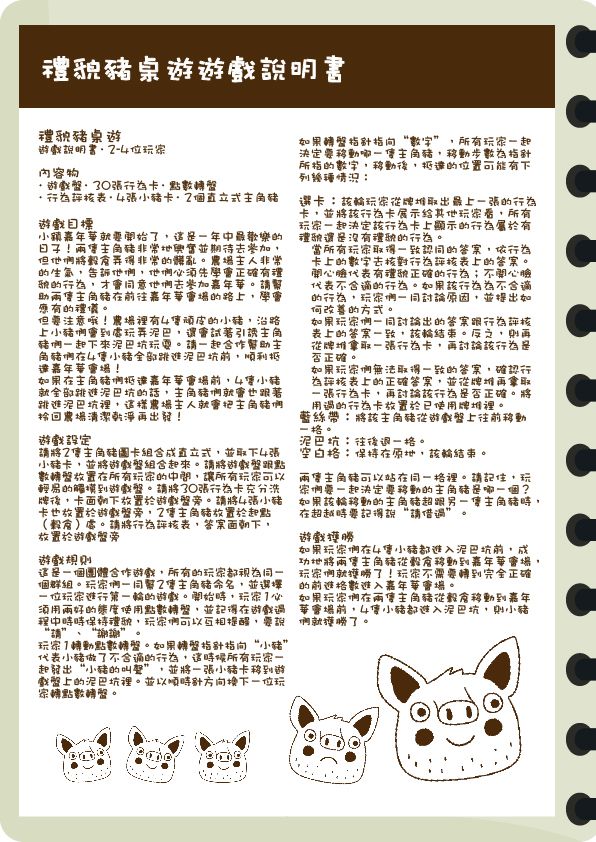 禮貌豬桌遊遊戲說明書
禮貌豬桌遊
遊戲說明書·2-4位玩家
內容物
·遊戲盤·30張行為卡·點數轉盤
·行為評核表·4張小豬卡·2個直立式主角豬
遊戲目標
小鎮嘉年華就要開始了，這是一年中最歡樂的
日子！兩隻主角豬非常地興奮並期待去參加，
但他們將穀倉弄得非常的髒亂。農場主人非常
的生氣，告訴他們，他們必須先學會正確有禮
貌的行為，才會同意他們去參加嘉年華。請幫
助兩隻主角豬在前往嘉年華會場的路上，學會
應有的禮儀。
但要注意哦！農場裡有4隻頑皮的小豬，沿路
上小豬們會到處玩弄泥巴，還會試著引誘主角
豬們一起下來泥巴坑玩耍。請一起合作幫助主
角豬們在4隻小豬全部跳進泥巴坑前，順利抵
達嘉年華會場！
如果在主角豬們抵達嘉年華會場前，4隻小豬
就全部跳進泥巴坑的話，主角豬們就會也跟著
跳進泥巴坑裡，這樣農場主人就會把主角豬們
拎回農場清潔乾淨再出發！
遊戲設定
請將2隻主角豬圖卡組合成直立式，並取下4張
小豬卡，並將遊戲盤組合起來。請將遊戲盤跟點
數轉盤放置在所有玩家的中間，讓所有玩家可以
輕易的觸摸到遊戲盤。請將30張行為卡充分洗
牌後，卡面朝下放置於遊戲盤旁。請將4張小豬
卡也放置於遊戲盤旁，2隻主角豬放置於起點
（穀倉）處。請將行為評核表，答案面朝下，
放置於遊戲盤旁
遊戲規則
這是一個團體合作遊戲，所有的玩家都視為同一
個群組。玩家們一同幫2隻主角豬命名，並選擇
一位玩家進行第一輪的遊戲。開始時，玩家1必
須用兩好的態度使用點數轉盤，並記得在遊戲過
程中時時保持禮貌，玩家們可以互相提醒，要說
“請”、“謝謝”。
玩家1轉動點數轉盤。如果轉盤指針指向“小豬”
代表小豬做了不合適的行為，這時候所有玩家一
起發出“小豬的叫聲”，並將一張小豬卡移到遊
戲盤上的泥巴坑裡。並以順時針方向換下一位玩
家轉點數轉盤。
如果轉盤指針指向“數字”，所有玩家一起
決定要移動哪一隻主角豬，移動步數為指針
所指的數字，移動後，抵達的位置可能有下
列幾種情況：
選卡：該輪玩家從牌堆取出最上一張的行為
卡，並將該行為卡展示給其他玩家看，所有
玩家一起決定該行為卡上顯示的行為屬於有
禮貌還是沒有禮貌的行為。
當所有玩家取得一致認同的答案，依行為
卡上的數字去核對行為評核表上的答案。
開心臉代表有禮貌正確的行為；不開心臉
代表不合適的行為。如果該行為為不合適
的行為，玩家們一同討論原因，並提出如
何改善的方式。
如果玩家們一同討論出的答案跟行為評核
表上的答案一致，該輪結束。反之，則再
從牌堆拿取一張行為卡，再討論該行為是
否正確。
如果玩家們無法取得一致的答案，確認行
為評核表上的正確答案，並從牌堆再拿取
一張行為卡，再討論該行為是否正確。將
用過的行為卡放置於已使用牌堆裡。
藍絲帶：將該主角豬從遊戲盤上往前移動
一格。
泥巴坑：往後退一格。
空白格：保持在原地，該輪結束。
兩隻主角豬可以站在同一格裡。請記住，玩
家們要一起決定要移動的主角豬是哪一個？
如果該輪移動的主角豬超跟另一隻主角豬時，
在超越時要記得說“請借過”。
遊戲獲勝
如果玩家們在4隻小豬都進入泥巴坑前，成
功地將兩隻主角豬從穀倉移動到嘉年華會場，
玩家們就獲勝了！玩家不需要轉到完全正確
的前進格數進入嘉年華會場。
如果玩家們在兩隻主角豬從穀倉移動到嘉年
華會場前，4隻小豬都進入泥巴坑，則小豬
們就獲勝了。